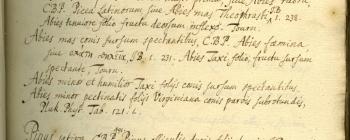 C.B.P. Picea Latinorum sive Abies mas Theophrasti, I.B. 1. 238.
Abies tenuiore folio fructu deorsum inflexo. Tourn.
Abies mas conis sursum spectantibus, C.B.P. Abies fæmina
sive I.B. 1. 231. Abies Taxi folio, fructu sursum
spectante, Tourn.
Abies minor et humilior Taxi folijs conis sursum spectantibus.
Abies minor pectinatis folijs Virginiana conis parvis subrotundis,
Pluk. Phyt. Tab. 121. f.
C.B.P.